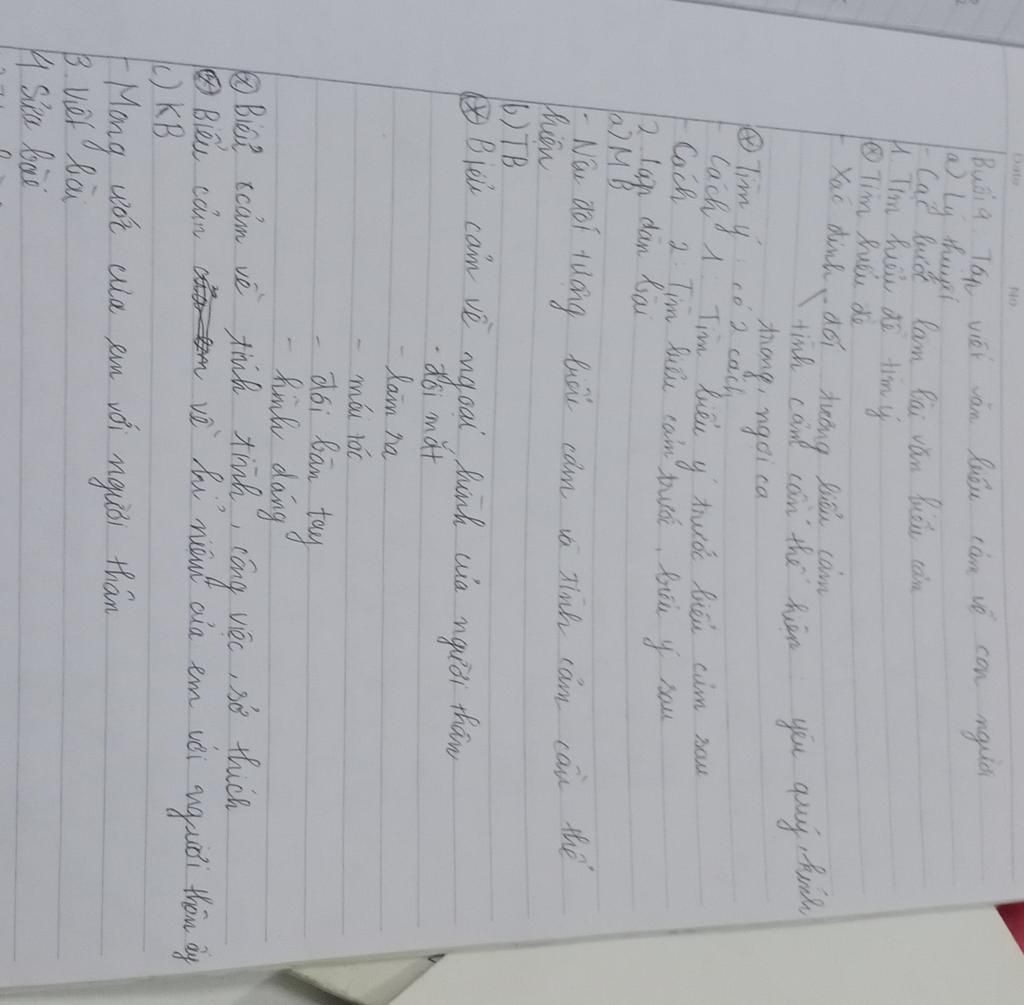 Date No
Buổi 9: Tập viết văn biểu cảm về con người
a) Lý thuyết
- Các bước làm bài văn biểu cảm
1. Tìm hiểu đề tìm ý
⊛ Tìm hiểu đề
- Xác định đối tượng biểu cảm
tình cảm cần thể hiện: yêu quý, kính
trọng, ngợi ca
⊛ Tìm ý: có 2 cách
- Cách 1: Tìm biểu ý trước biểu cảm sau
- Cách 2: Tìm biểu cảm trước, biểu ý sau
2. lập dàn bài
a) MB
- Nêu đối tượng biểu cảm và tình cảm cần thể
hiện
b) TB
⊛ Biểu cảm về ngoại hình của người thân
- đôi mắt
- làn ra
- mái tóc
- đôi bàn tay
- hình dáng
⊛ Biểu cảm về tính tình, công việc, sở thích
⊛ Biểu cảm về kỉ niệm của em với người thân ấy
c) KB
- Mong ước của em với người thân
3. Viết bài
4. Sửa bài